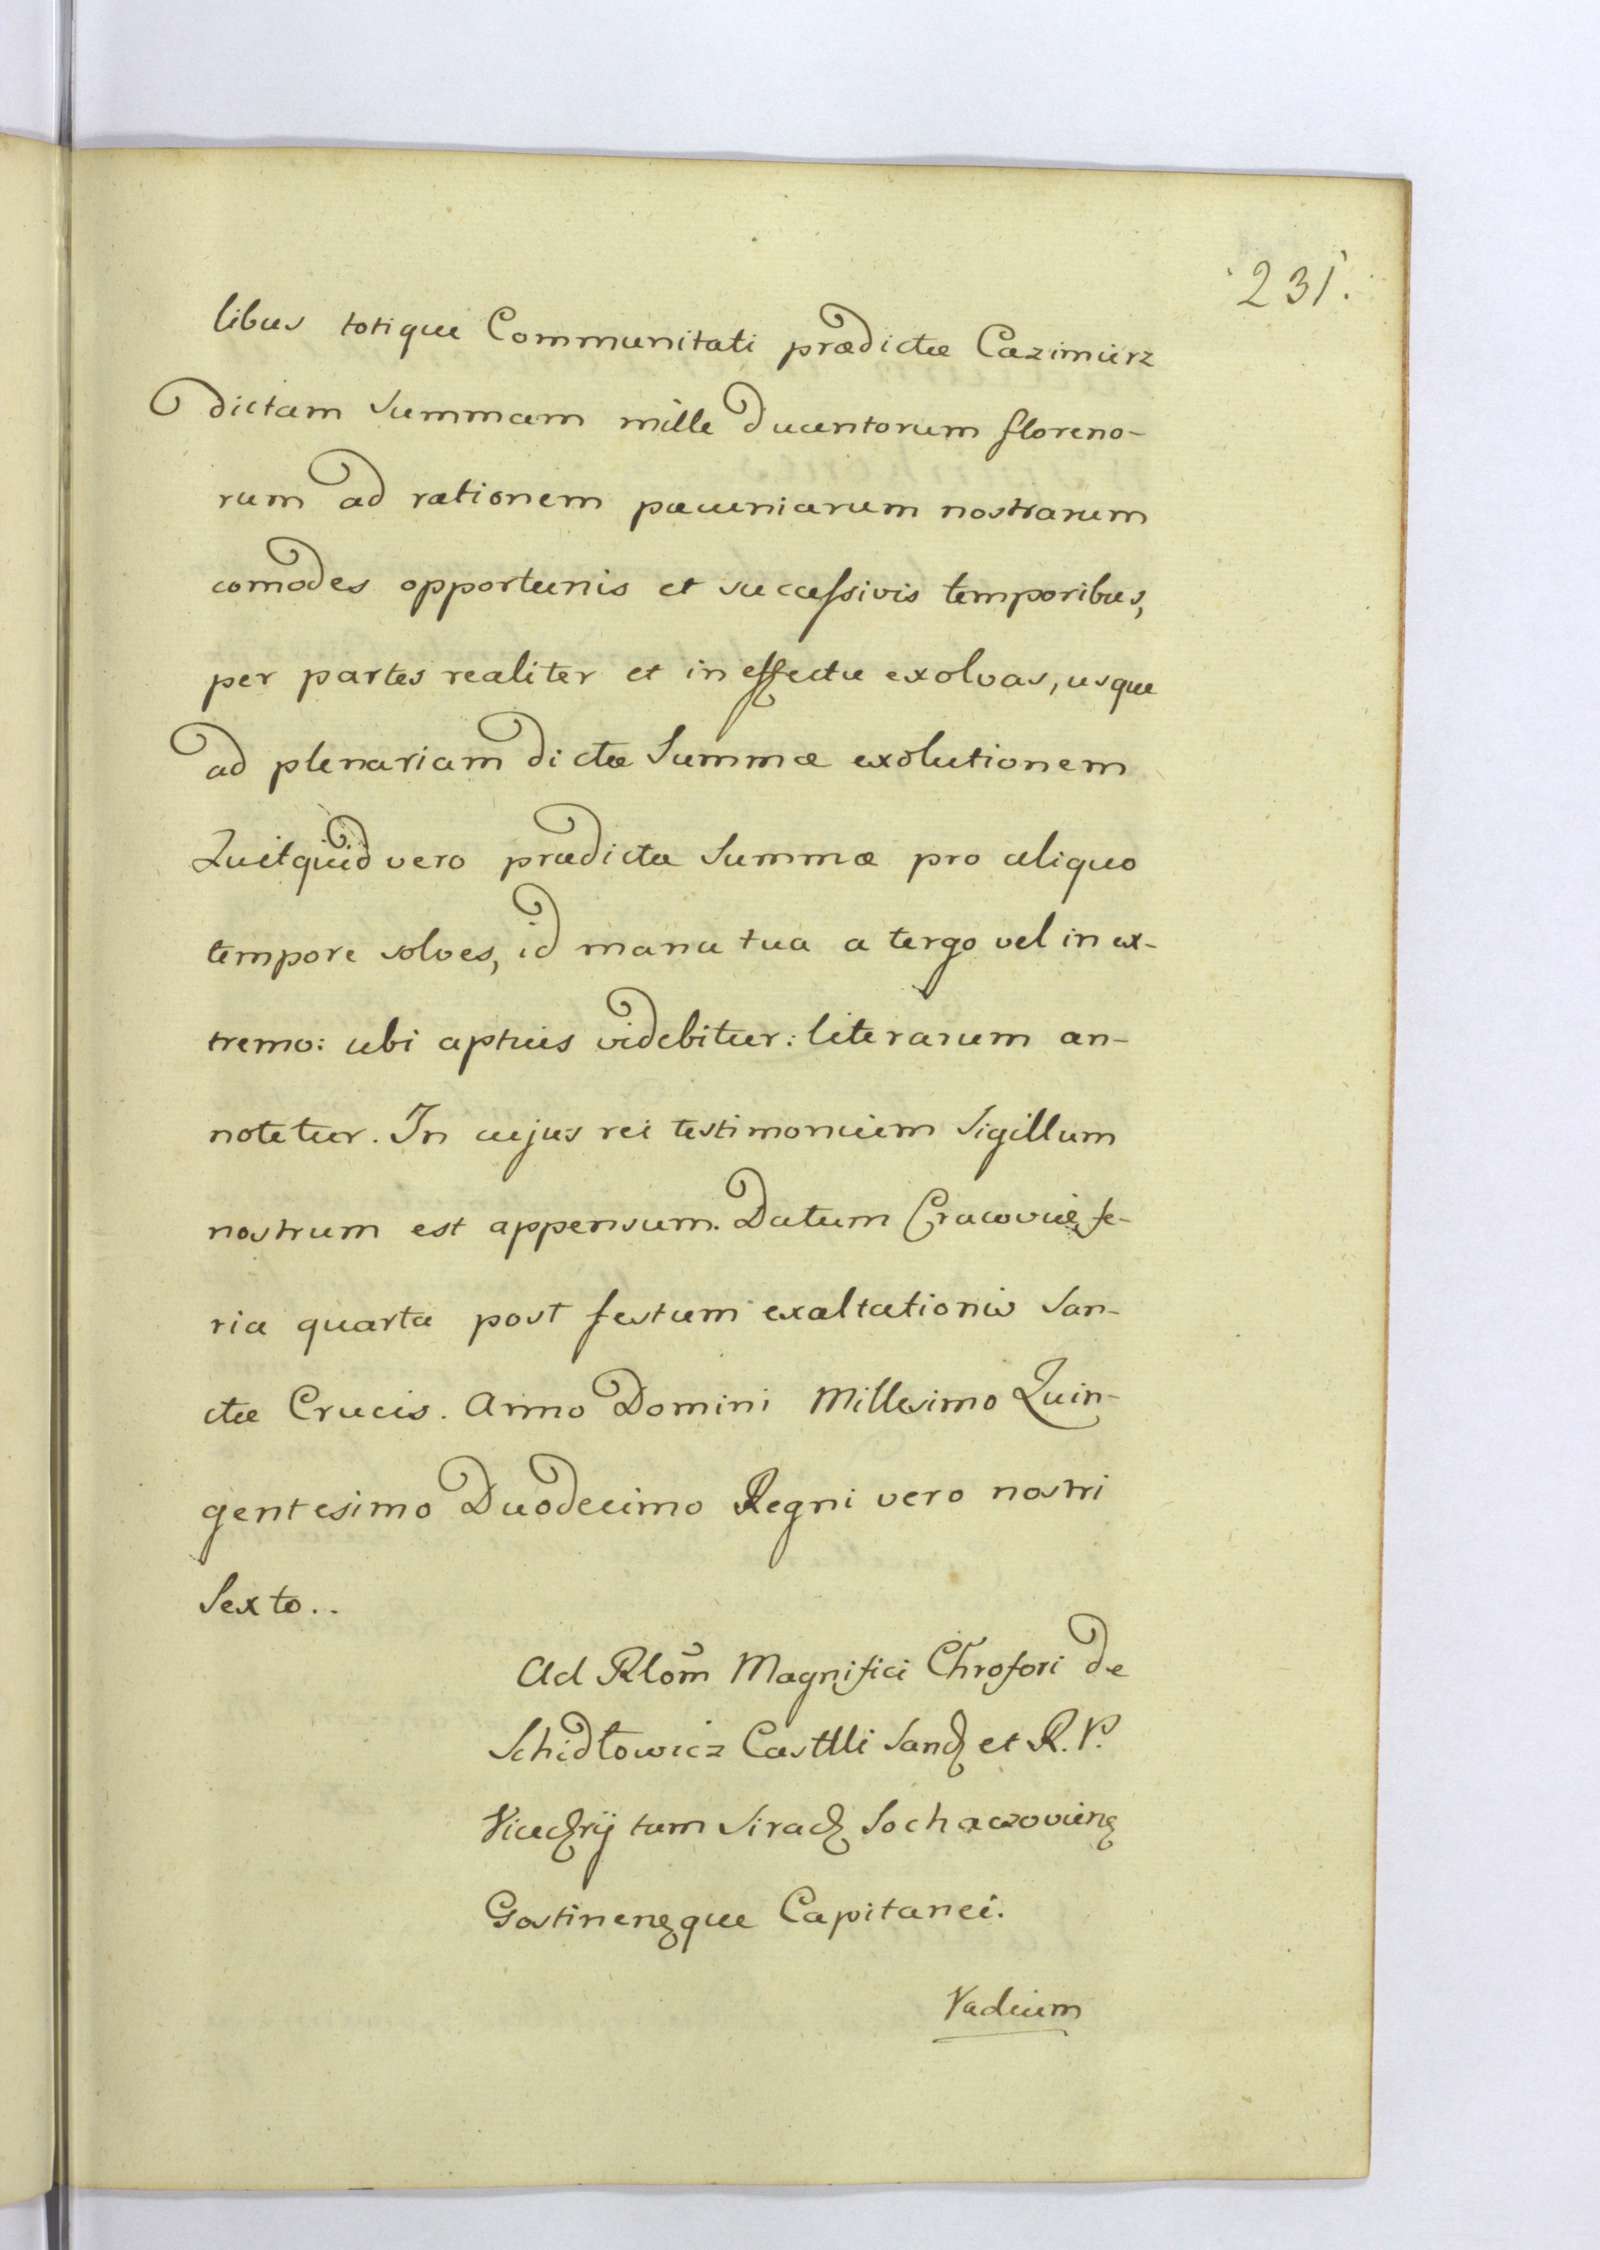 231.
libus totique Communitati prædictæ Cazimirz
dictam summam mille Ducentorum floreno-
rum ad rationem pæcuniarum nostrarum
comodes opportunis et successivis temporibus,
per partes realiter et in effectu exolvas, usque
ad plenariam dictæ Summæ exolutionem
Quitquid vero prædictæ Summæ pro aliquo
tempore solves, id manu tua a tergo vel in ex-
tremo: ubi aptius videbitur: literarum an-
notetur. In cujus rei testimonium Sigillum
nostrum est appensum. Datum Cracoviæ fe-
ria quarta post festum exaltationis San-
ctæ Crucis. Anno Domini Millesimo Quin-
gentesimo Duodecimo Regni vero nostri
Sexto..
Ad Rlom̃ Magnifici Chrofori de
Schidłowicz Castlli Sand et R. P.
tum Sirad Sochaczovien
Gostinenque Capitanei.
Vadium